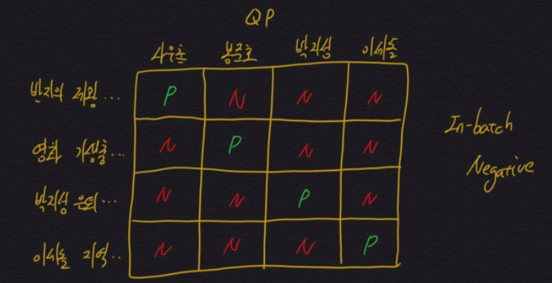 QP
사우론 봉준호 박지성 이세돌
반지의 제왕... P N N N
영화 기생충... N P N N
박지성 은퇴... N N P N
이세돌 지역.. N N N P
In-batch
Negative